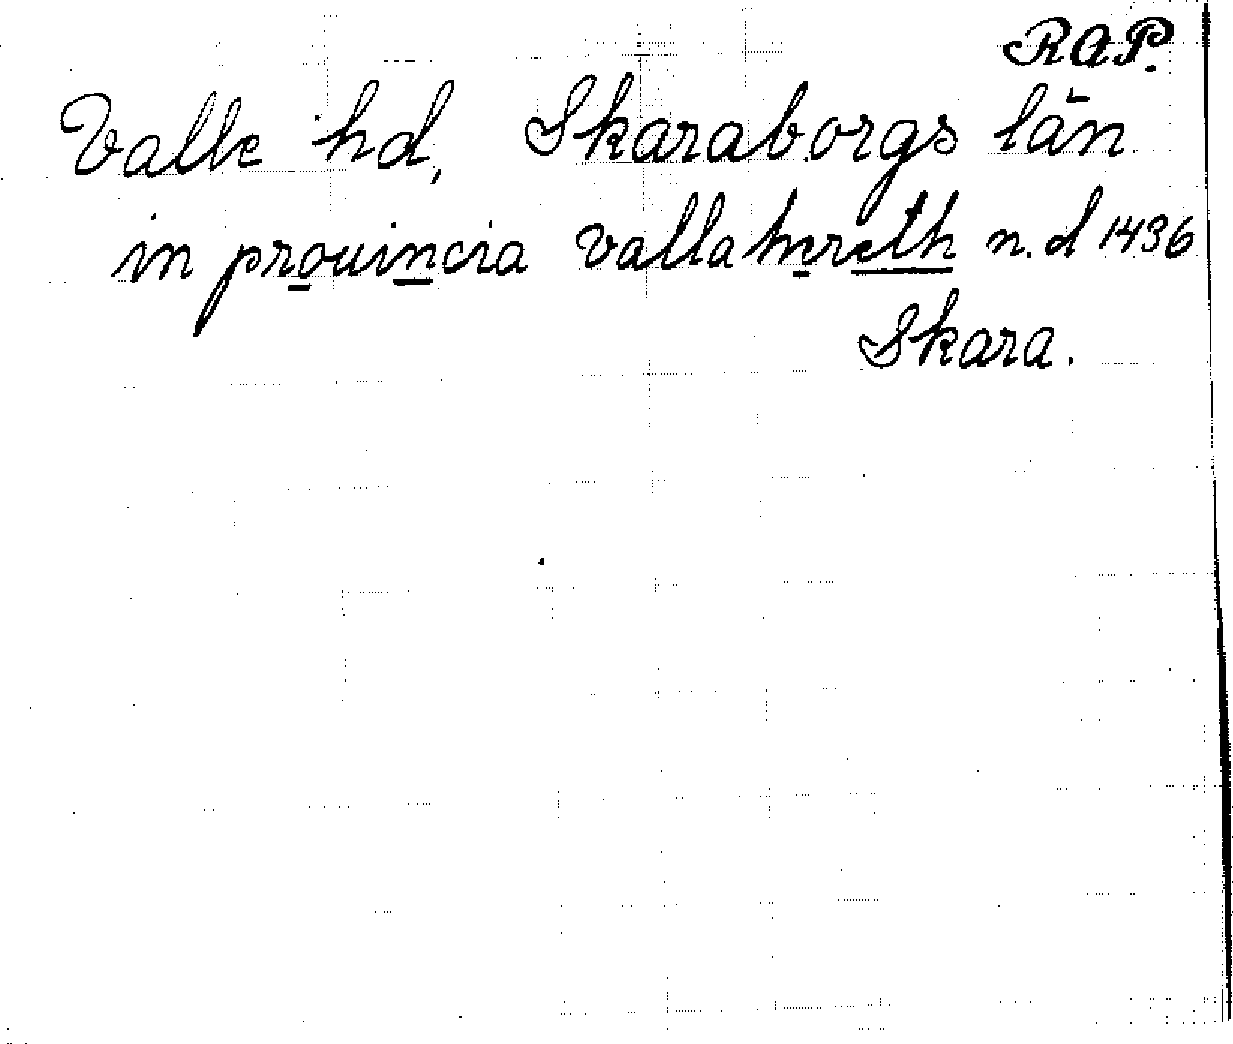 RAP.
Valle hd, Skaraborgs län
in prouincia vallahæreth n.d 1436
Skara.